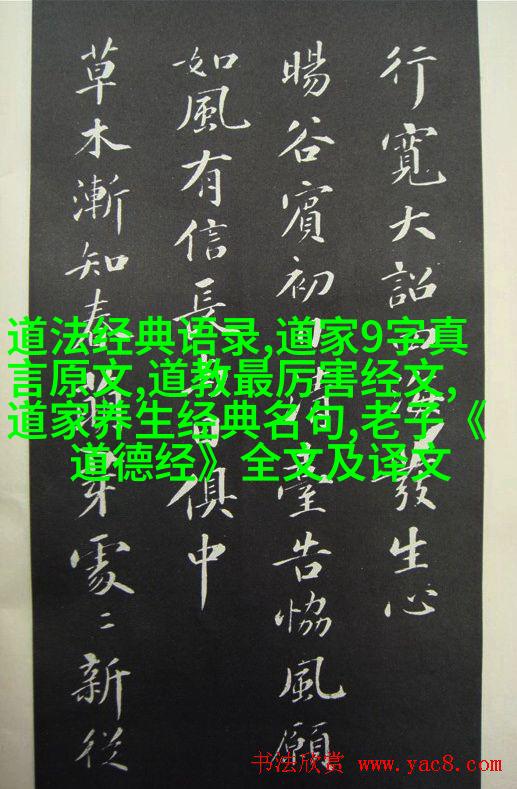 行寬大詔發生心
暘谷賓初日清臺告協風願
如風有信長俱中
草木漸知春處〻新從
道法经典语录,道家9字真
言原文,道教最厉害经文,
道家养生经典名句,老子《
道德经》全文及译文
书法欣赏 www.yac8.com